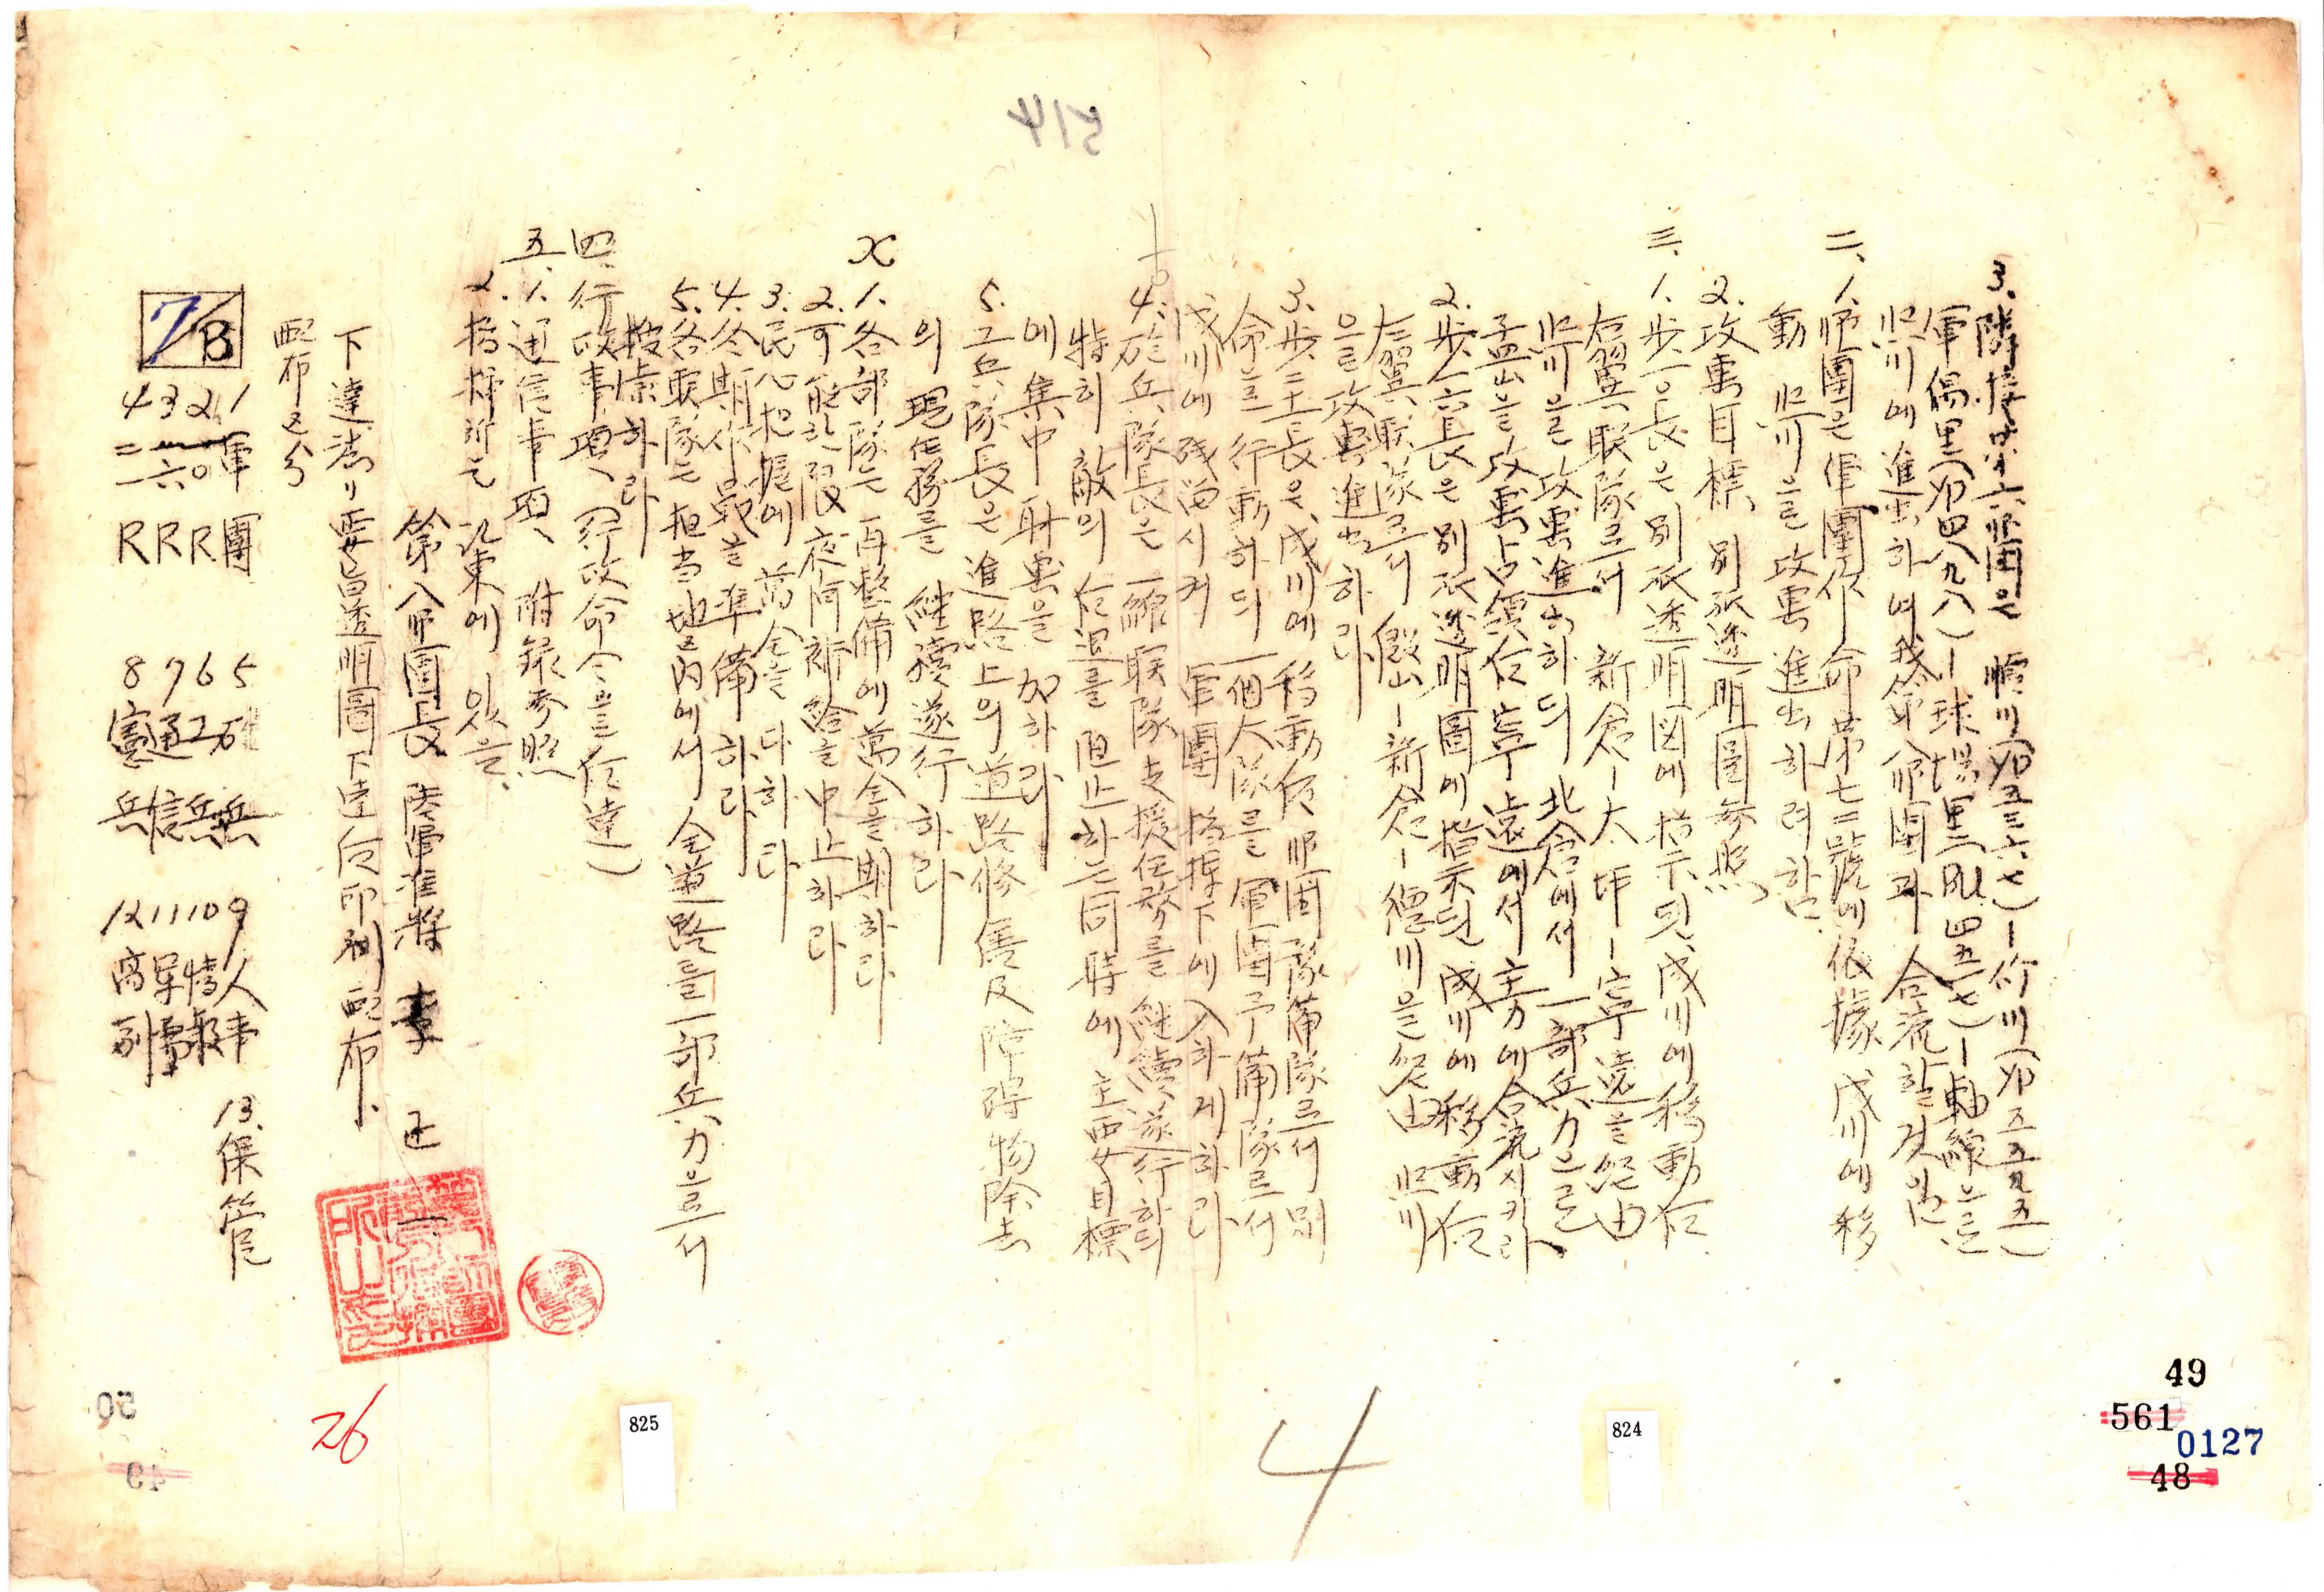 514
3. 隣接第六師團은 順川(YD五三六七)-价川(YD五五九五)
軍隅里(YD四九八八)-球場里(BU四五一七)-軸線으로
熙川에 進出하여 我第八師團과 合流할 것임
二、1. 師團은 軍團作命第七三號에 依據 成川에 移
動 熙川으로 攻擊 進出하려함.
2. 攻擊目標、別紙透明圖參照
三、1. 步一〇長은 別紙透明図에 指示된、成川에 移動後
右翼聯隊로서 新倉-大坪-寧遠을 經由
熙川으로 攻擊進出하되 北倉에서 一部兵力으로
孟山을 攻擊占領後 寧遠에서 主力에 合流시키라
2. 步一六長은 別紙透明圖에 指示된 成川에 移動後
左翼聯隊로서 假山-新倉-德川을 經由 熙川
으로 攻擊進出하라
3. 步二一長은 成川에 移動後 師團豫備隊로서 別
命으로 行動하되 一個大隊를 軍團予備隊로서
成川에 殘留시켜 軍團指揮下에 入하게 하라
4. 砲兵隊長은 一線聯隊支援任務를 繼續遂行하되
特히 敵의 後退를 阻止하는 同時에 主要目標
에 集中射擊을 加하라
5. 工兵隊長은 進路上의 道路修繕及障碍物除去
의 現任務를 繼續遂行하라
X 1. 各部隊는 再整備에 萬全을 期하라
2. 可能한限 夜间補給을 中止하라
3. 民心把握에 萬全을 다하라
4. 冬期作戰을 準備하라
5. 各聯隊는 担当地区内에서 全道路를 一部兵力으로서
搜索하라
四、行政事項、(行政命令으로 後達)
五、1. 通信事項、附録參照
2. 指揮所는 江東에 있음、
第八師團長 陸軍准將 李 正 一
下達法 = 要旨透明圖下達後印刷配布.
配布区分
7/13
1 軍團
2 一〇R
3 一六R
4 二一R
5 砲兵
6 工兵
7 通信
8 憲兵
9 人事
10 情報
11 軍需
12 高副
13. 保管
26
825
4
824
49
561
0127
48
50
49